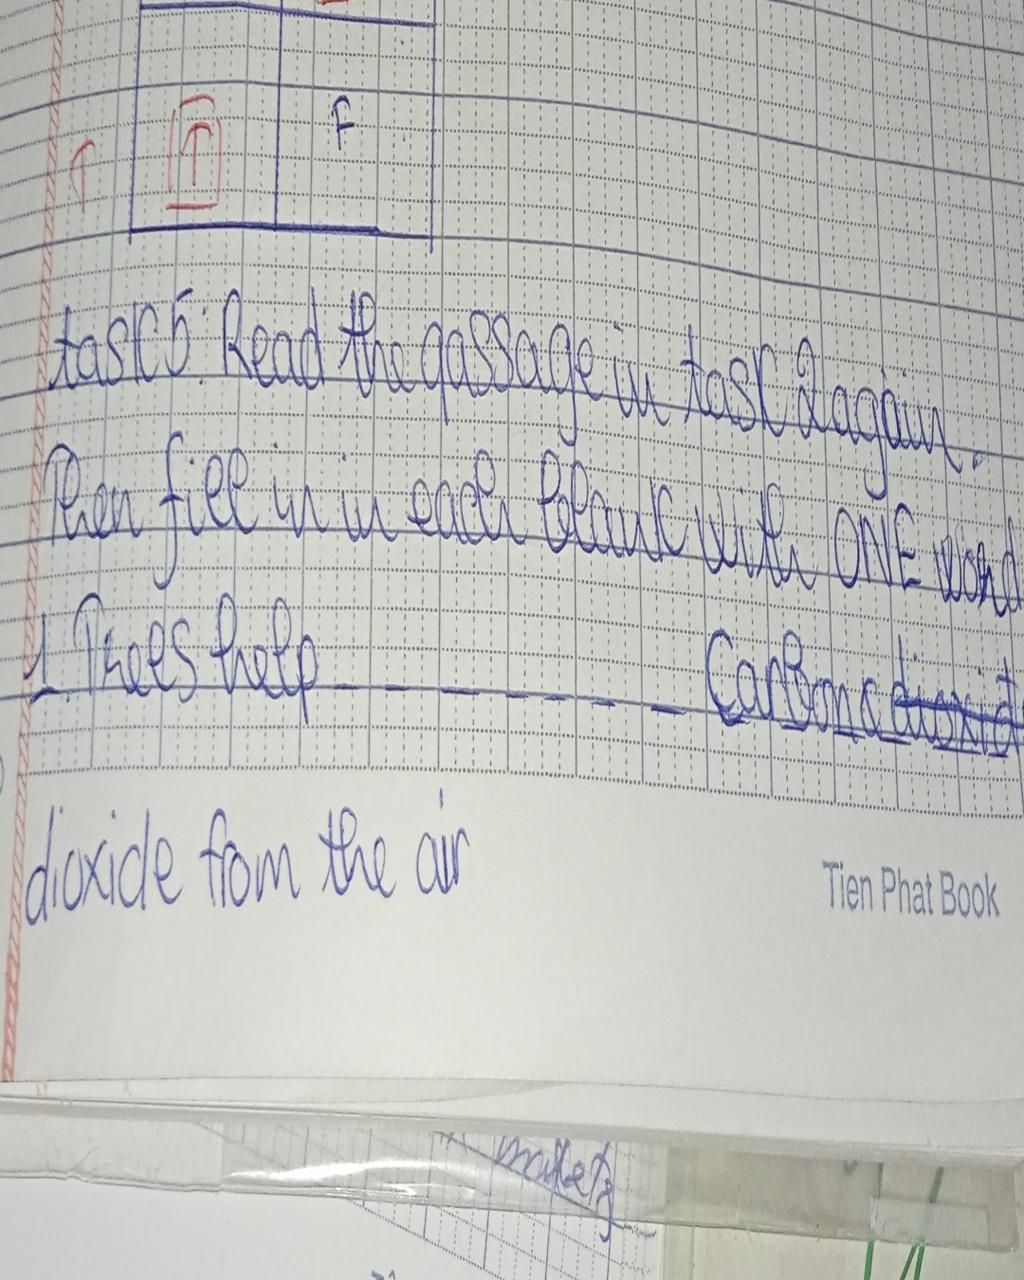 F
T T
task 5: Read the passage in task 2 again.
Then fill in in each blank with ONE word
1. Trees help _ _ _ _ _ _ _ Carbona dioxid
dioxide from the air
Tien Phat Book